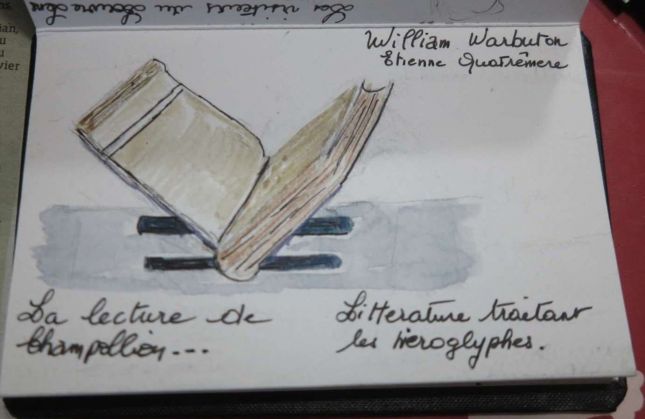 Les visiteurs du Louvre Lens
ian,
vier
William Warbuton
Etienne Quatrêmere
La lecture de
Champollion---
Litterature traitant
les hieroglyphes.